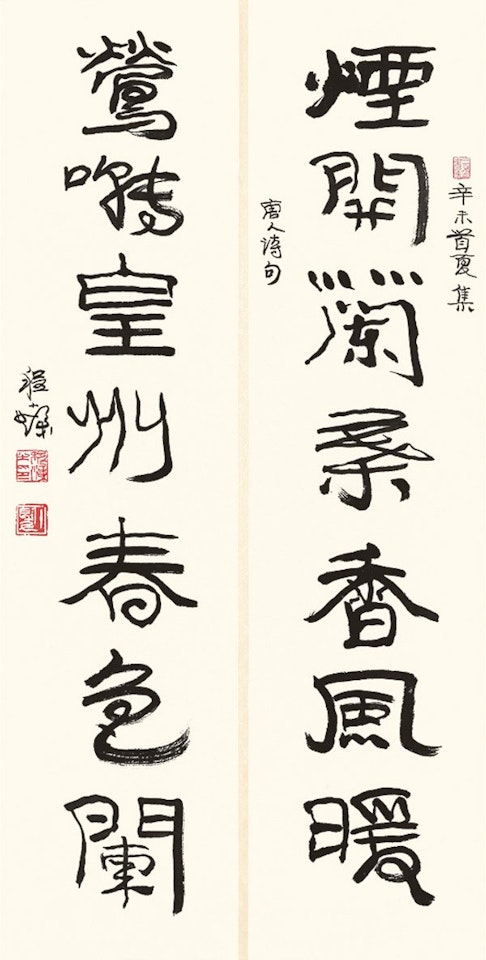 煙開蘭葉香風暖
辛未首夏集
唐人詩句
鶯囀皇州春色闌
程十髮